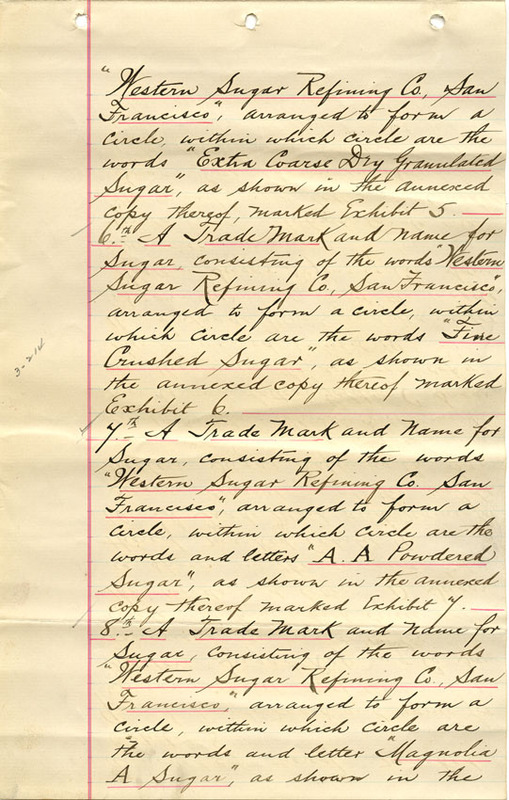 "Western Sugar Refining Co., San
Francisco", arranged to form a
circle, within which circle are the
words "Extra Coarse Dry Granulated
Sugar", as shown in the annexed
copy thereof, marked Exhibit 5.
6.th A Trade Mark and name for
Sugar, consisting of the words "Western
Sugar Refining Co., San Francisco",
arranged to form a circle, within
which circle are the words "Fine
Crushed Sugar", as shown in
the annexed copy thereof marked
Exhibit 6.
3-214
7th A Trade Mark and Name for
Sugar, consisting of the words
"Western Sugar Refining Co. San
Francisco", arranged to form a
circle, within which circle are the
words and letters "A. A Powdered
Sugar", as shown in the annexed
copy thereof marked Exhibit 7.
8.th A Trade Mark and Name for
Sugar, consisting of the words
"Western Sugar Refining Co., San
Francisco," arranged to form a
circle, within which circle are
the words and letter "Magnolia
A Sugar", as shown in the